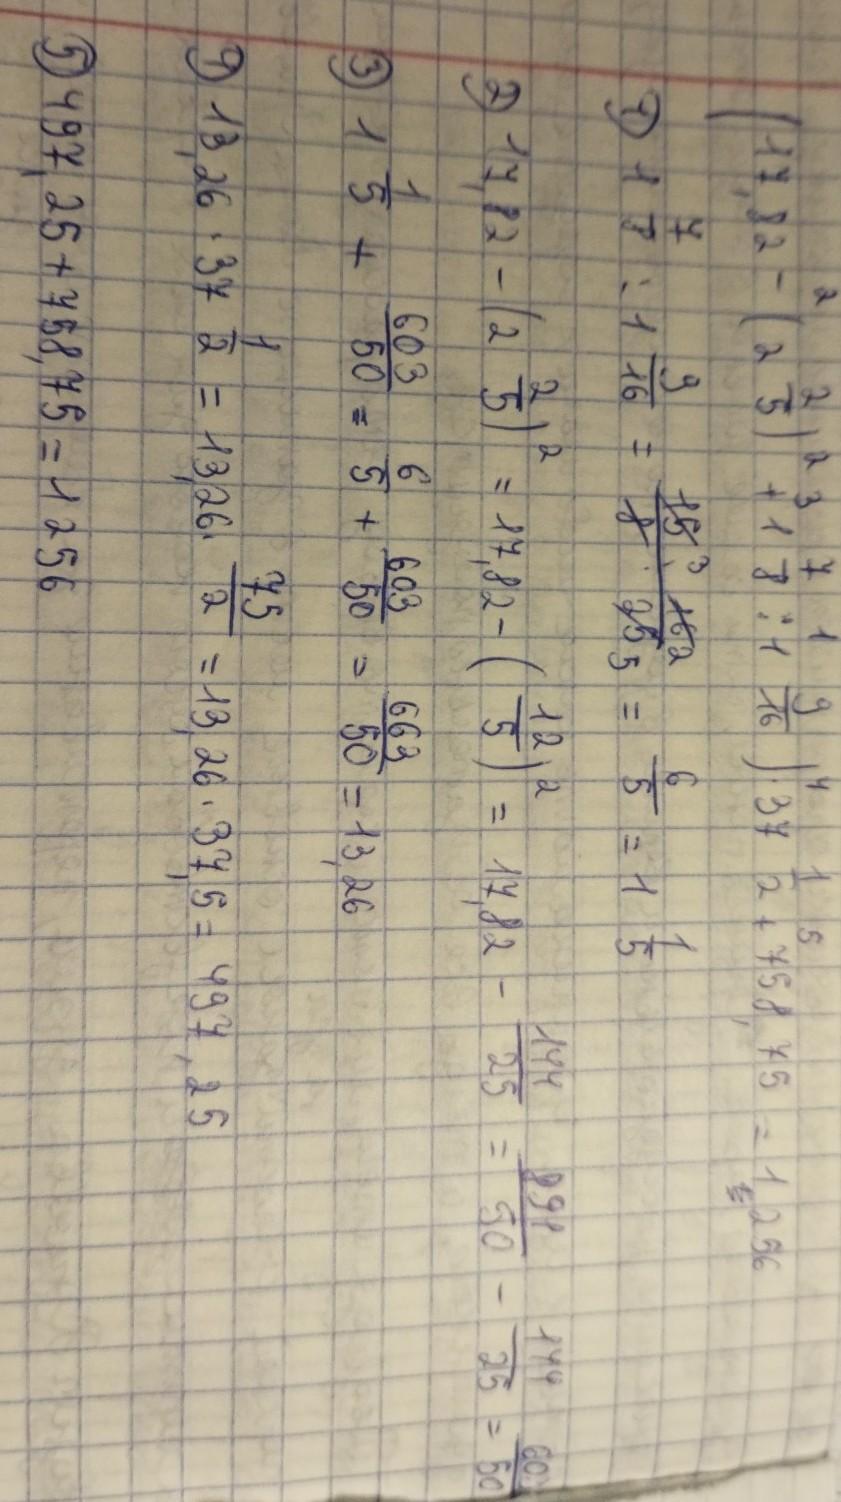 (17,82 - (2 2/5)² + 1 7/8 : 1 9/16) · 37 1/2 + 758,75 = 1256
① 1 7/8 : 1 9/16 = 15 3 · 16 2 / 8 · 25 5 = 6/5 = 1 1/5
② 17,82 - (2 2/5)² = 17,82 - (12/5)² = 17,82 - 144/25 = 891/50 - 144/25 = 603/50
③ 1 1/5 + 603/50 = 6/5 + 603/50 = 663/50 = 13,26
④ 13,26 · 37 1/2 = 13,26 · 75/2 = 13,26 · 37,5 = 497,25
⑤ 497,25 + 758,75 = 1256